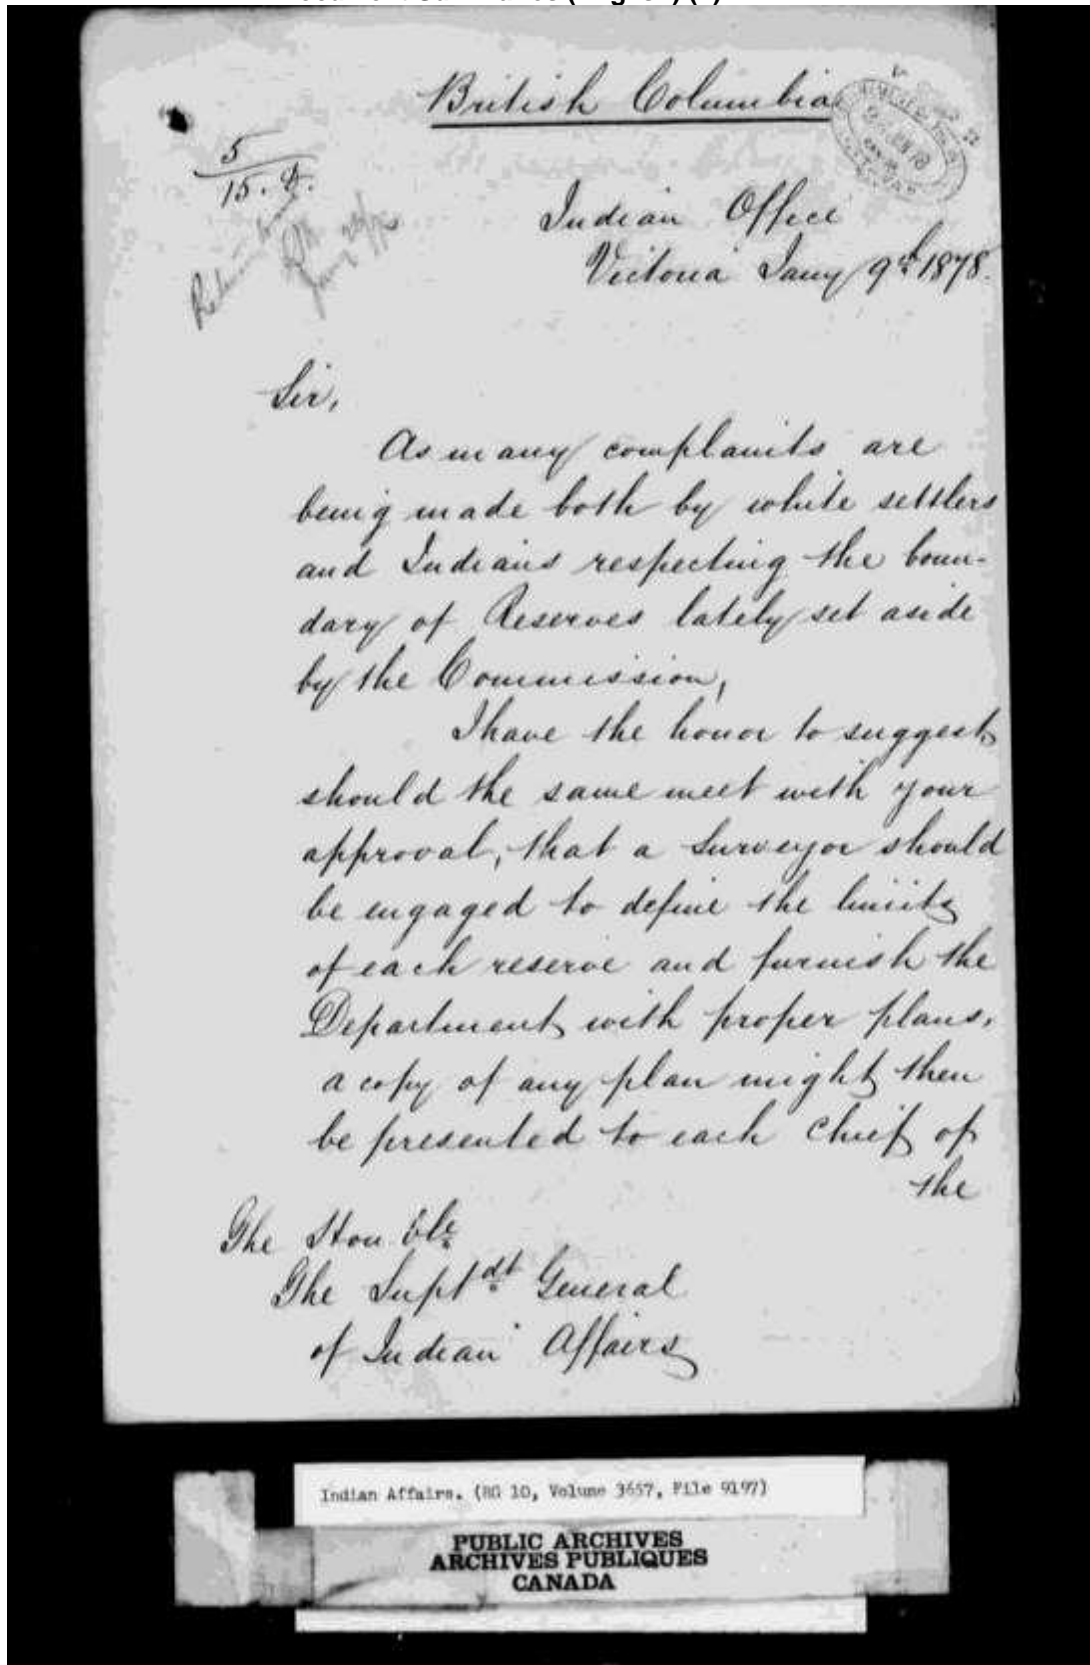 British Columbia
5
15. D.
Indian Office
Victoria Jany 9th 1878.
Sir,
As many complaints are
being made both by white settlers
and Indians respecting the boun-
dary of Reserves lately set aside
by the Commission,
I have the honor to suggest
should the same meet with your
approval, that a Surveyor should
be engaged to define the limits
of each reserve and furnish the
Department with proper plans.
a copy of any plan might then
be presented to each Chief of
the
The Honble
The Suptdt General
of Indian Affairs
Indian Affairs. (RG 10, Volume 3657, File 9197)
PUBLIC ARCHIVES
ARCHIVES PUBLIQUES
CANADA